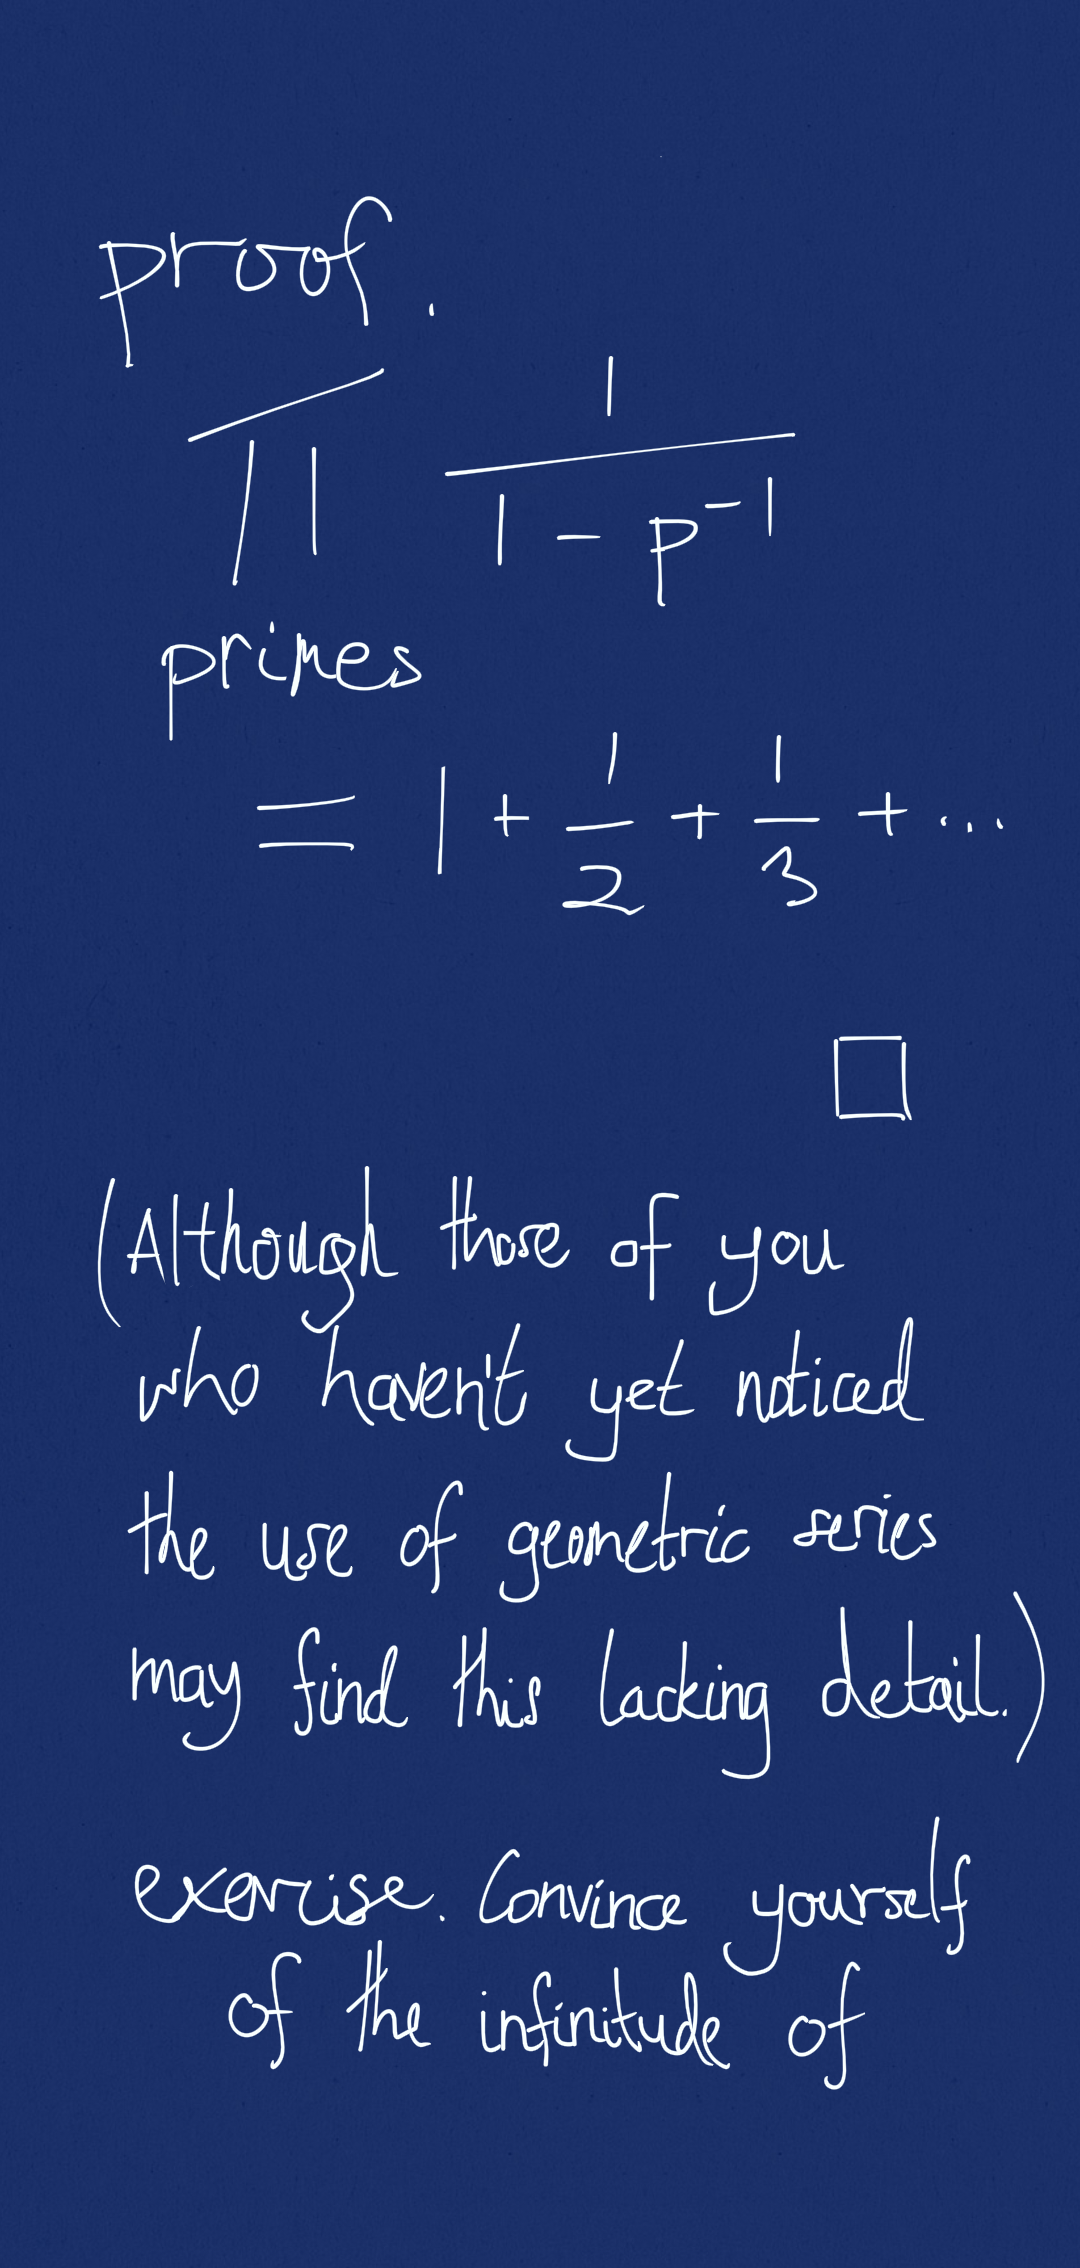 proof.
∏ 1 / (1 - p⁻¹)
primes
= 1 + 1/2 + 1/3 + ...
□
(Although those of you
who haven't yet noticed
the use of geometric series
may find this lacking detail.)
exercise. Convince yourself
of the infinitude of